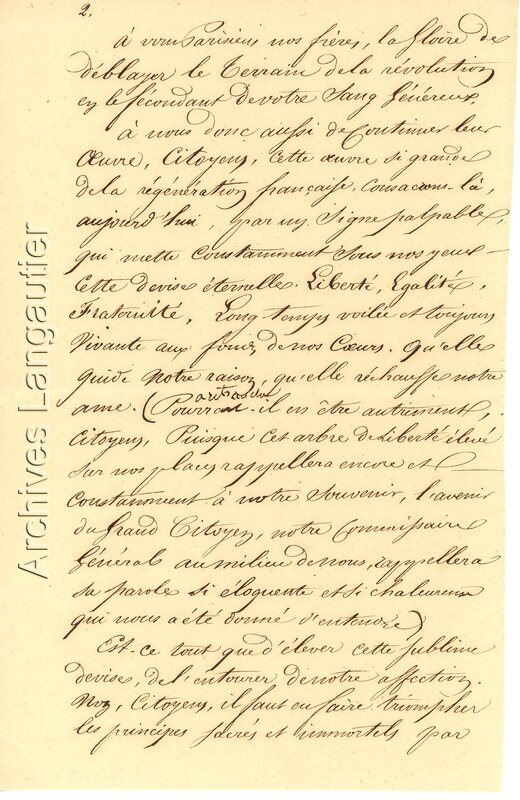 2.
à vous Parisiens nos frères, la gloire de
déblayer le terrain de la révolution
en le fécondant de votre sang généreux.
à nous donc aussi de continuer leur
Œuvre, Citoyens, cette œuvre si grande
de la régénération française. consacrons-la,
aujourd'hui, par un signe palpable,
qui mette constamment sous nos yeux
cette devise éternelle. Liberté, Egalité,
Fraternité, Long-temps voilée et toujours
vivante au fond de nos Cœurs. qu'elle
guide notre raison, qu'elle réchauffe notre
ame. (Pourrait-il en être autrement,
Citoyens, Puisque cet arbre de Liberté élevé
sur nos places rappellera encore et
constamment à notre souvenir, l'avenir
du Grand Citoyen, notre Commissaire
Général au milieu de nous, rappellera
sa parole si éloquente et si chaleureuse
qui nous a été donné d'entendre)
Est-ce tout que d'élever cette sublime
devise, de l'entourer de notre affection.
Non, Citoyens, il faut en faire triompher
les principes sacrés et immortels par
Archives Langautier